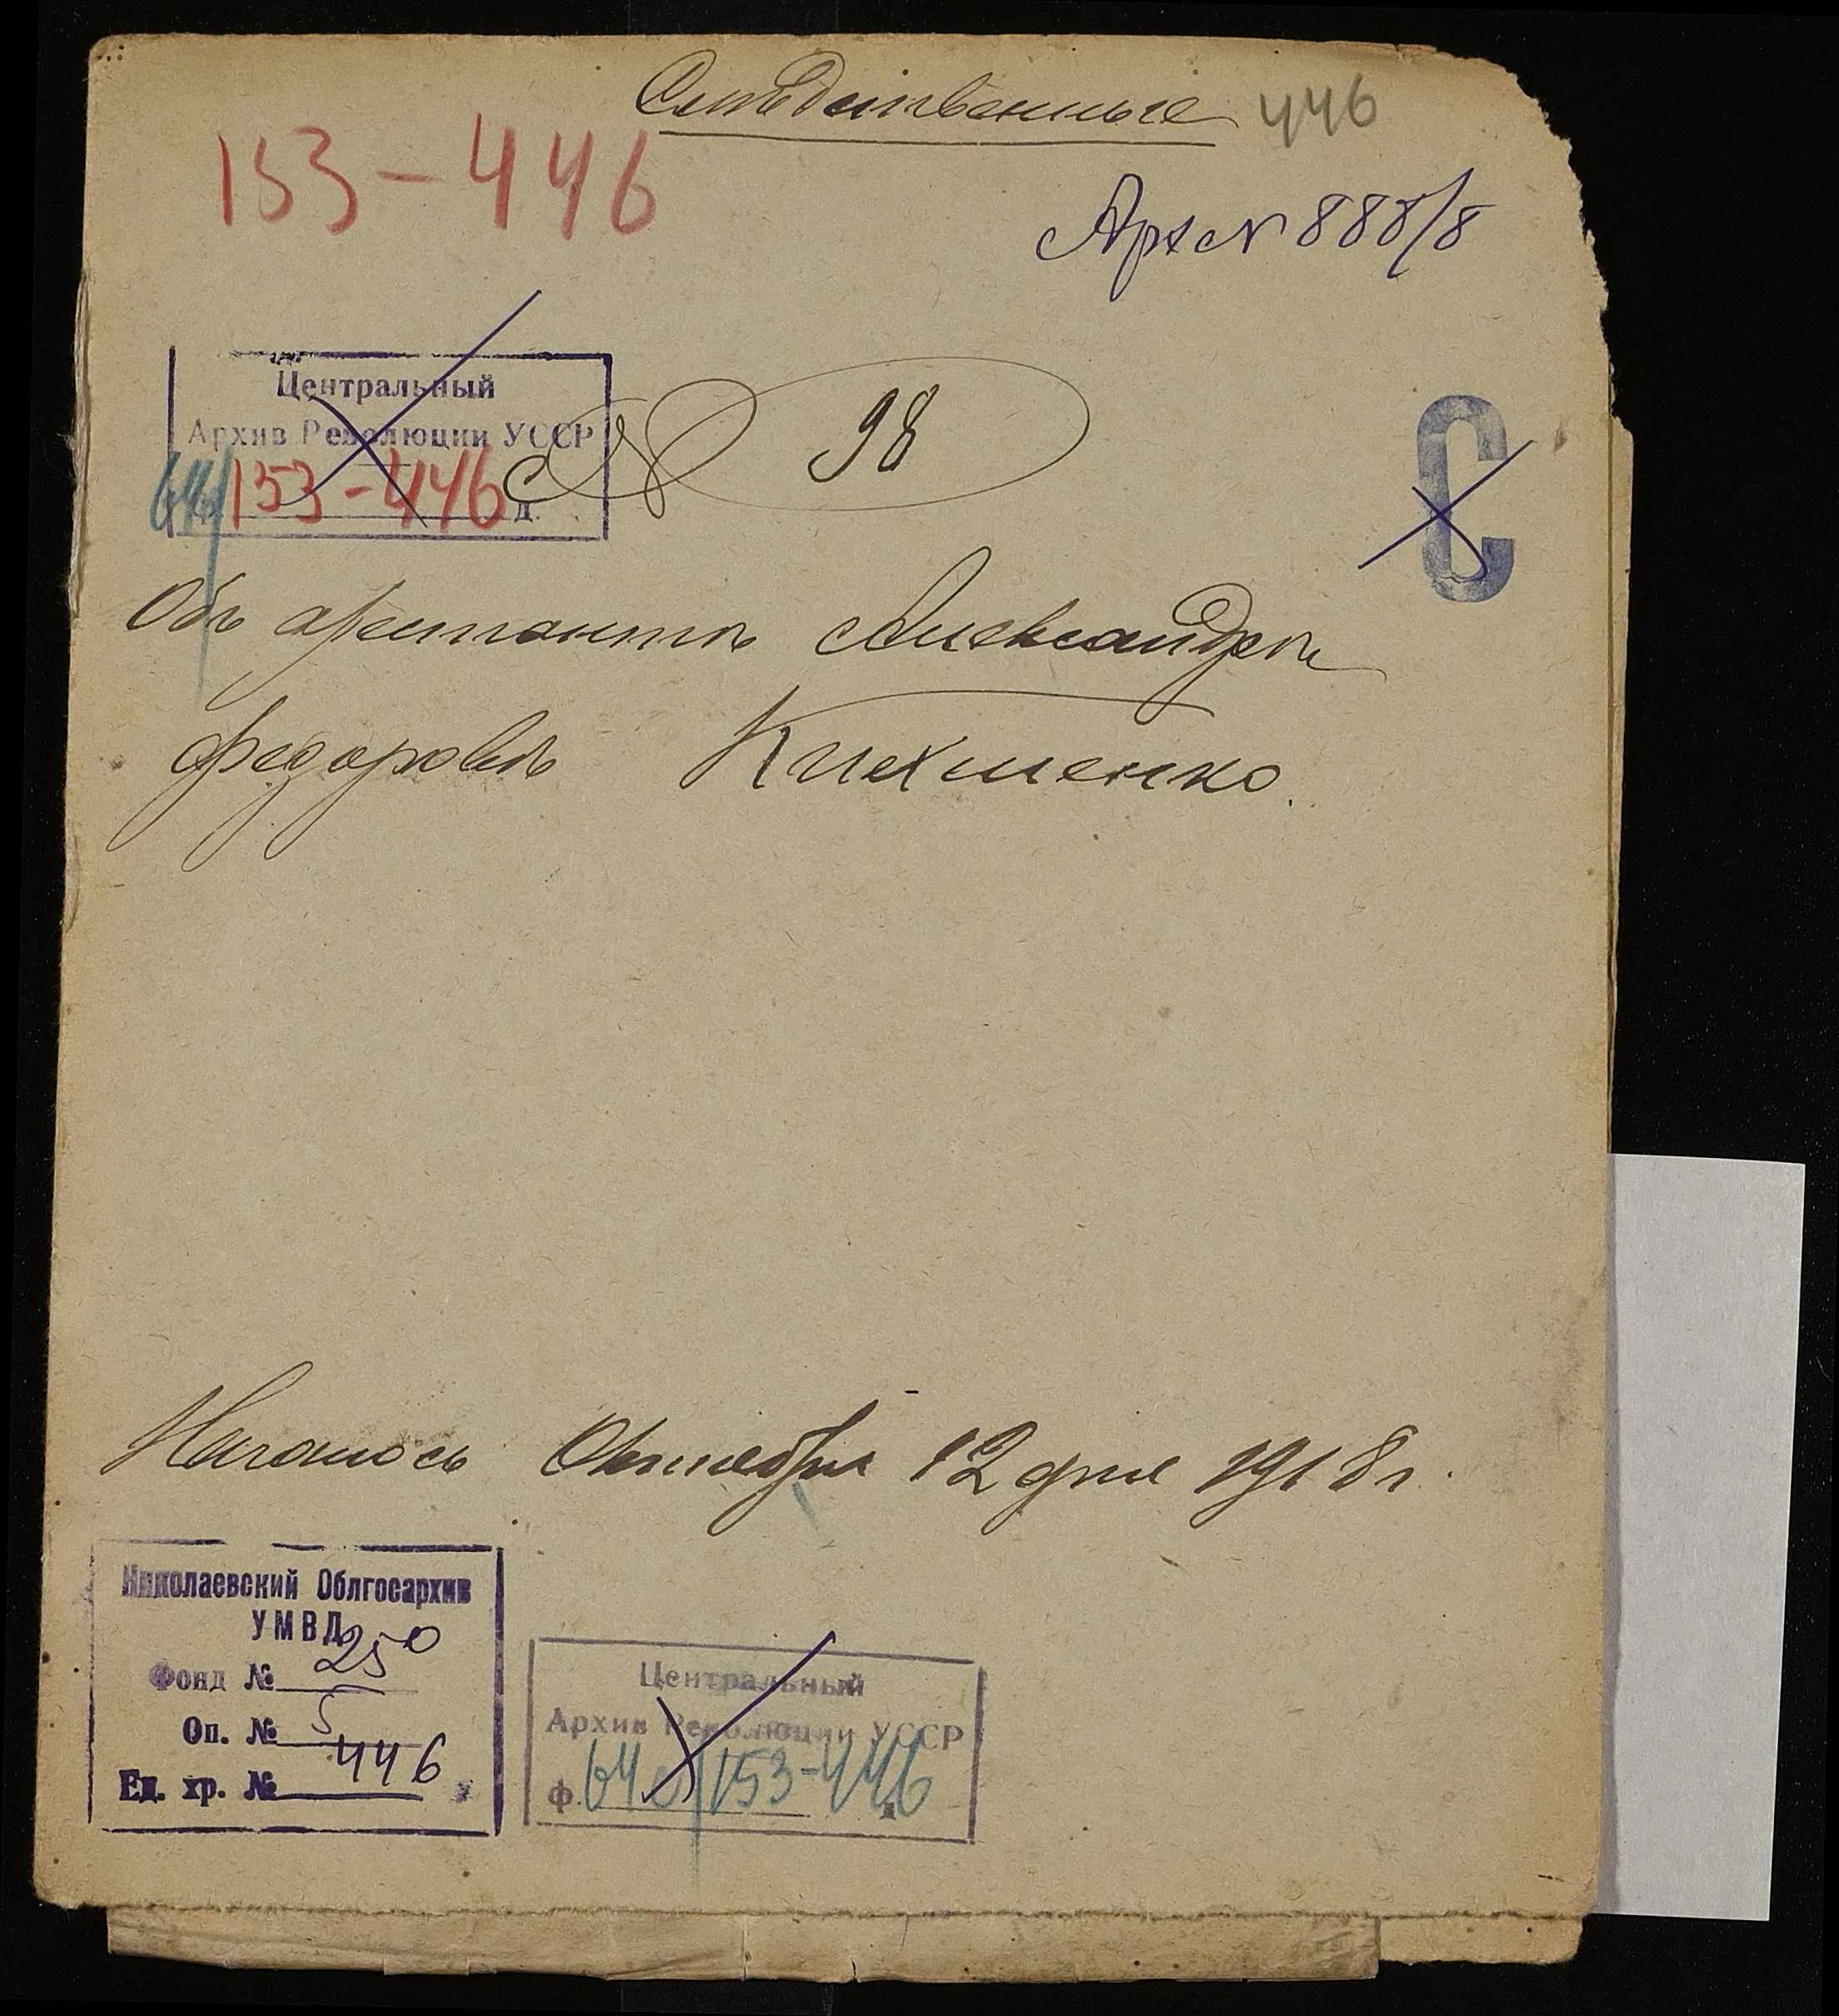 Слѣдственные 446
153-446
Арх № 888/8
Центральный
Архив Революции УССР
64 153-446с д.
№ 98
С
Объ арестантѣ Александрѣ
Федоровѣ
Началось Октября 12 дня 1918 г.
Николаевский Облгосархив
УМВД
Фонд № 250
Оп. № 5
Ед. хр. № 446
Центральный
Архив Революции УССР
ф. 64с/153-446 д.